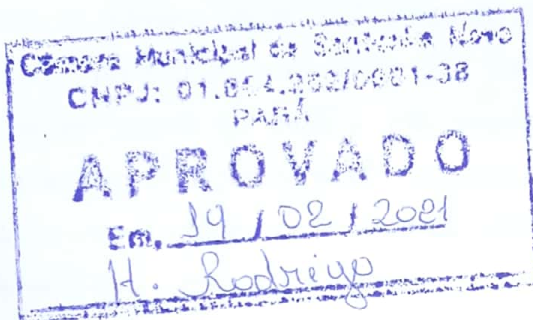 Câmara Municipal de Santarém Novo
CNPJ: 01.
PARÁ
APROVADO
Em, 19 / 02 / 2021
H. Rodrigo